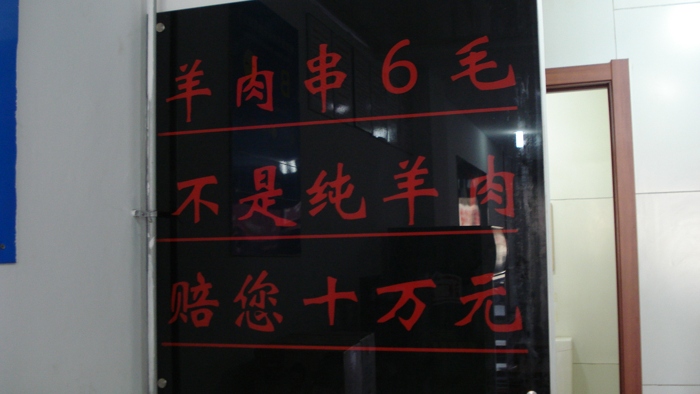 羊肉串6毛
不是纯羊肉
赔您十万元